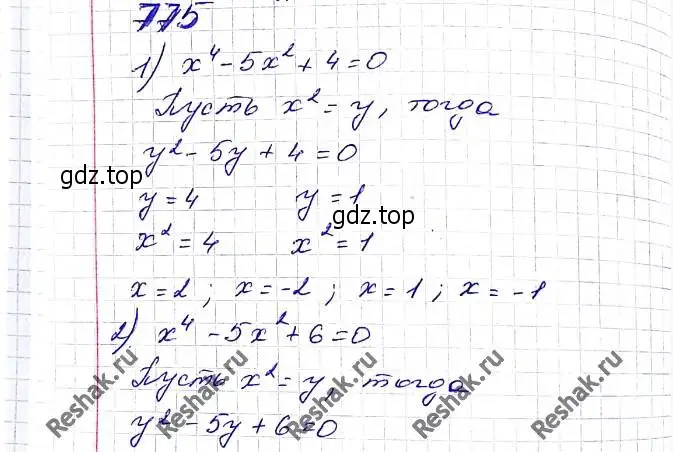 775
1) x⁴ - 5x² + 4 = 0
Пусть x² = y, тогда
y² - 5y + 4 = 0
gdz.top
y = 4 y = 1
gdz.top
x² = 4 x² = 1
x = 2 ; x = -2 ; x = 1 ; x = -1
2) x⁴ - 5x² + 6 = 0
Пусть x² = y, тогда
y² - 5y + 6 = 0
Reshak.ru
Reshak.ru
Reshak.ru
Reshak.ru